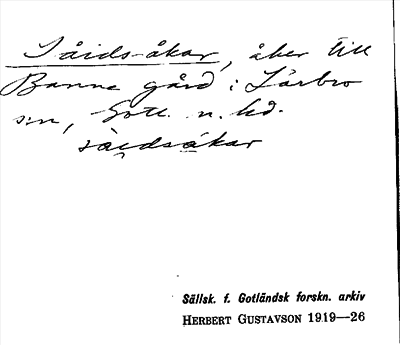 Såids-åkar, åker till
Banne gård i Lärbro
sn, Gotl. n. hd.
såidsåkar
Sällsk. f. Gotländsk forskn. arkiv
HERBERT GUSTAVSON 1919—26